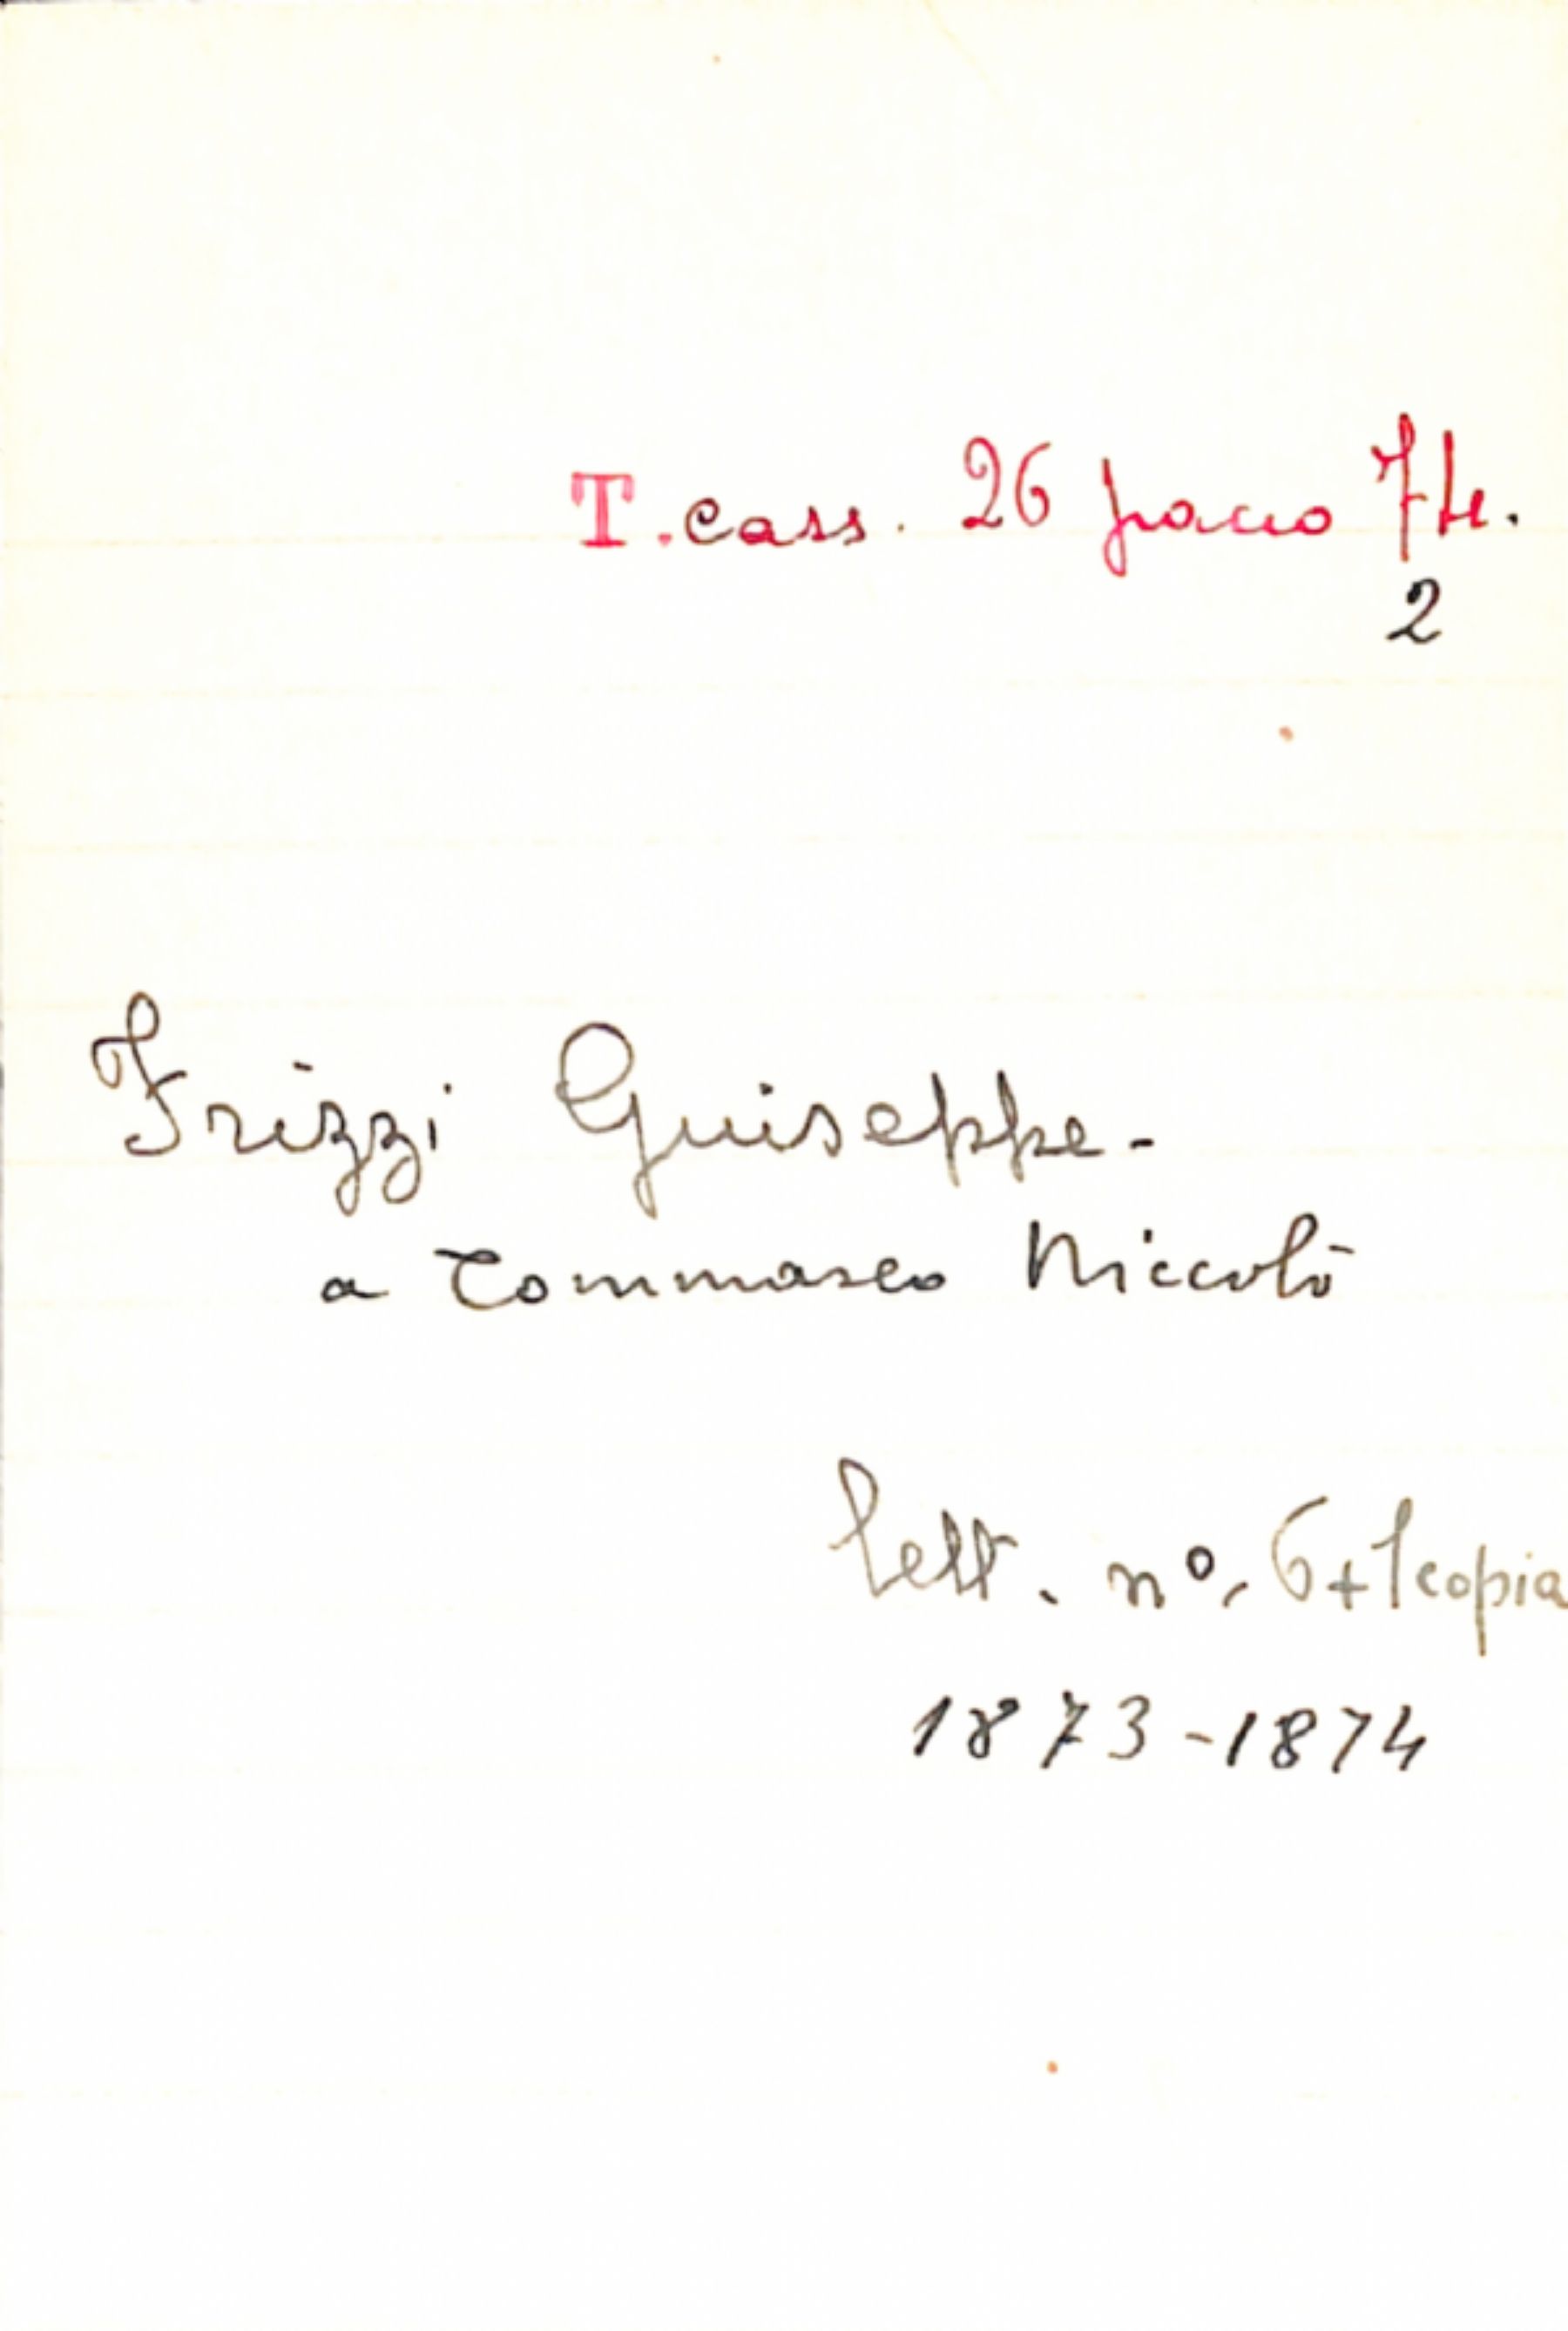 T. cass. 26 pacco 74.
2
Frizzi Guiseppe -
a Tommaseo Niccolò
lett. nº. 6+1copia
1873-1874